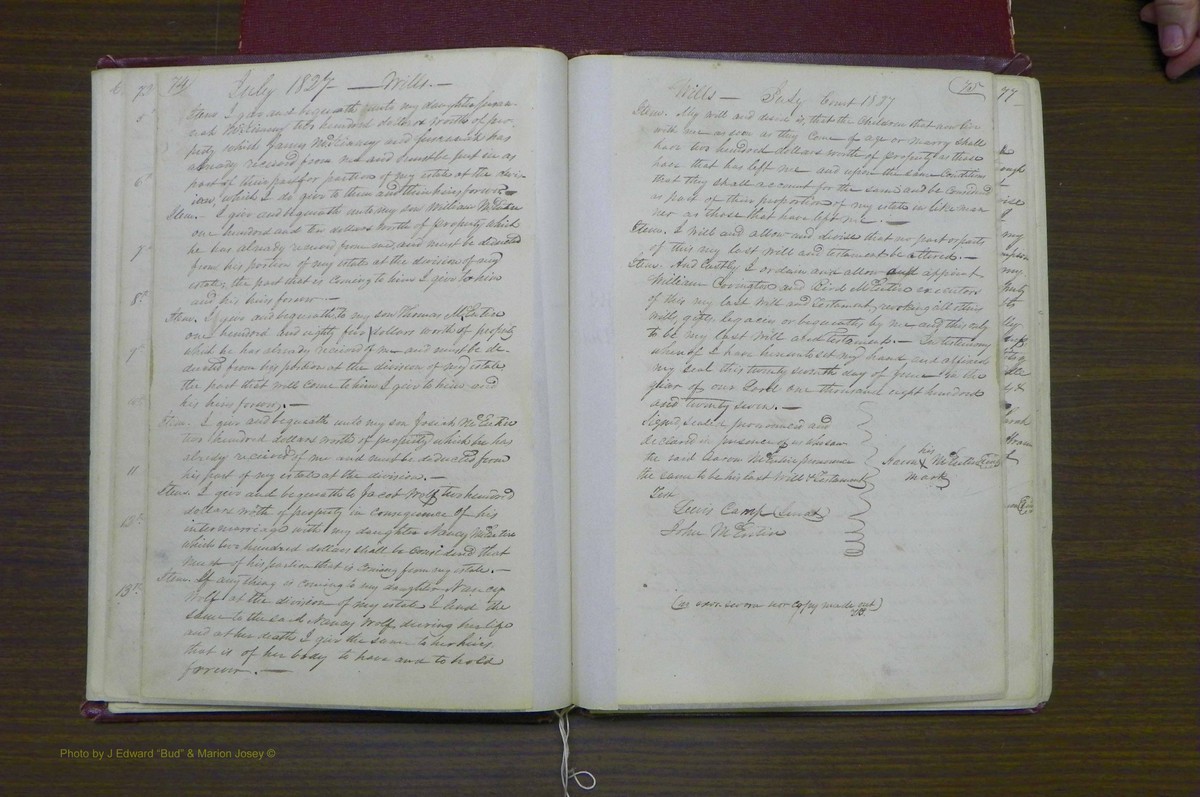 74
July 1827 — Wills. —
Item I give and bequeath unto my daughter Susan-
nah McKinney two hundred dollars worth of pro-
perty which James McKinney and Susannah has
already received from me and must be put in as
part of their part or portion of my estate at the divi-
sion, which I do give to them and their heirs forever —
Item. I give and bequeath unto my son William McEntire
one hundred and ten dollars worth of property which
he has already received from me, and must be deducted
from his portion of my estate at the division of my
estate, the part that is coming to him I give to him
and his heirs forever. —
Item. I give and bequeath to my son Thomas McEntire
one hundred and eighty five dollars worth of property
which he has already received of me and must be de-
ducted from his portion at the division of my estate
the part that will come to him I give to him and
his heirs forever. —
Item. I give and bequeath unto my son Josiah McEntire
two hundred dollars worth of property which he has
already received of me and must be deducted from
his part of my estate at the division. —
Item. I give and bequeath to Jacob Wolf two hundred
dollars worth of property in consequence of his
intermarriage with my daughter Nancy McEntire
which two hundred dollars shall be considered that
much of his portion that is coming from my estate. —
Item. If any thing is coming to my daughter Nancy
Wolf at the division of my estate I lend the
same to the said Nancy Wolf during her life
and at her death I give the same to her heirs
that is of her body to have and to hold
forever. —
5th
6th
7th
8th
9th
10th
11
12th
13th
75
Wills — July Court 1827
Item. My will and desire is, that the children that now live
with me as soon as they come of age or marry shall
have two hundred dollars worth of property as those
have that has left me and upon the same conditions
that they shall account for the same and be considered
as part of their proportion of my estate in like man
ner as those that have left me. —
Item. I will and allow and devise that no part or parts
of this my last will and testament be altered. —
Item. And Lastly I ordain and allow and appoint
William Covington and McEntire executors
of this my last will and testament, revoking all others
wills, gifts, legacies or bequeaths by me and this only
to be my last will and testament. — In testimony
whereof I have hereunto set my hand and affixed
my seal this twenty seventh day of June in the
year of our Lord one thousand eight hundred
and twenty seven. —
Signed, sealed pronounced and
declared in presence of us who saw
the said Aaron McEntire pronounce
the same to be his last will & Testament
his
Aaron X McEntire Seal
mark
Test
Lewis Camp Jurat
John McEntire
(no exor. sworn nor copy made out)
77
Photo by J Edward "Bud" & Marion Josey ©